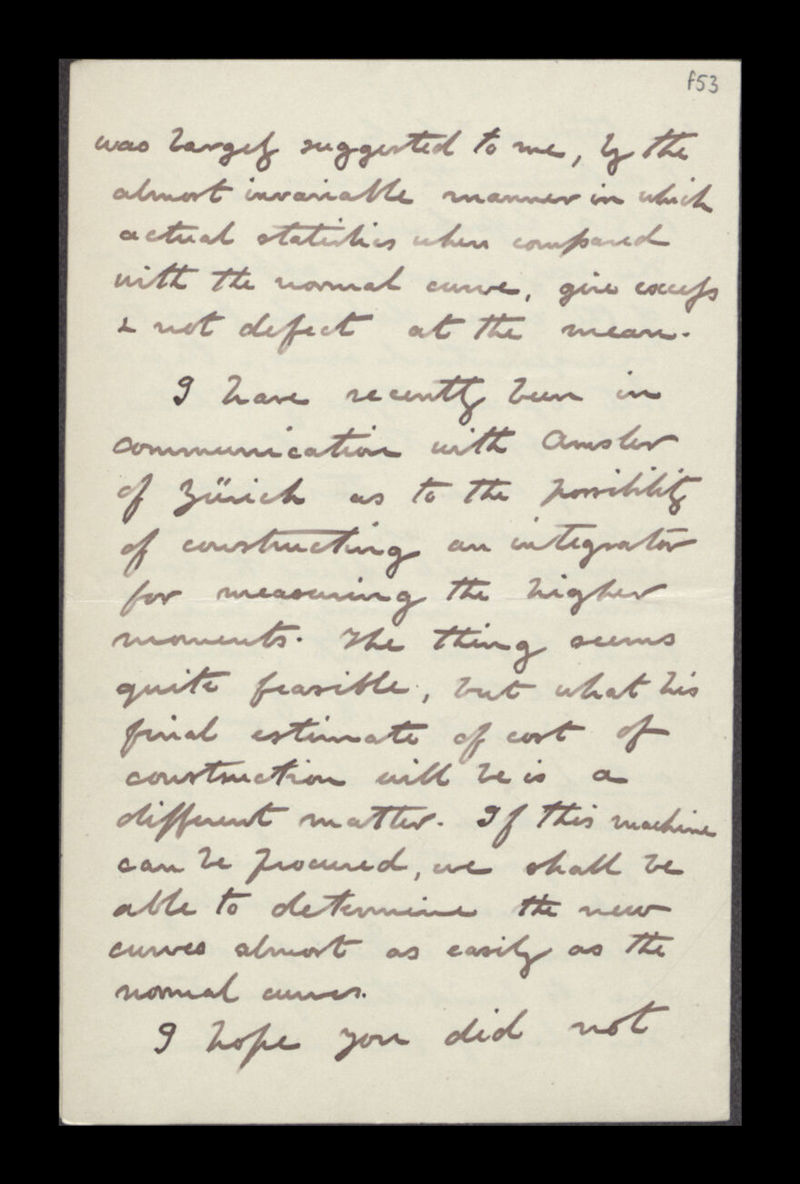 f53
was largely suggested to me, by the
almost invariable manner in which
actual statistics when compared
with the normal curve, give excess
& not defect at the mean.
I have recently been in
communication with Amsler
of Zürich as to the possibility
of constructing an integrator
for measuring the higher
moments. The thing seems
quite feasible, but what his
final estimate of cost of
construction will be is a
different matter. If this machine
can be procured, we shall be
able to determine the new
curves almost as easily as the
normal curves.
I hope you did not